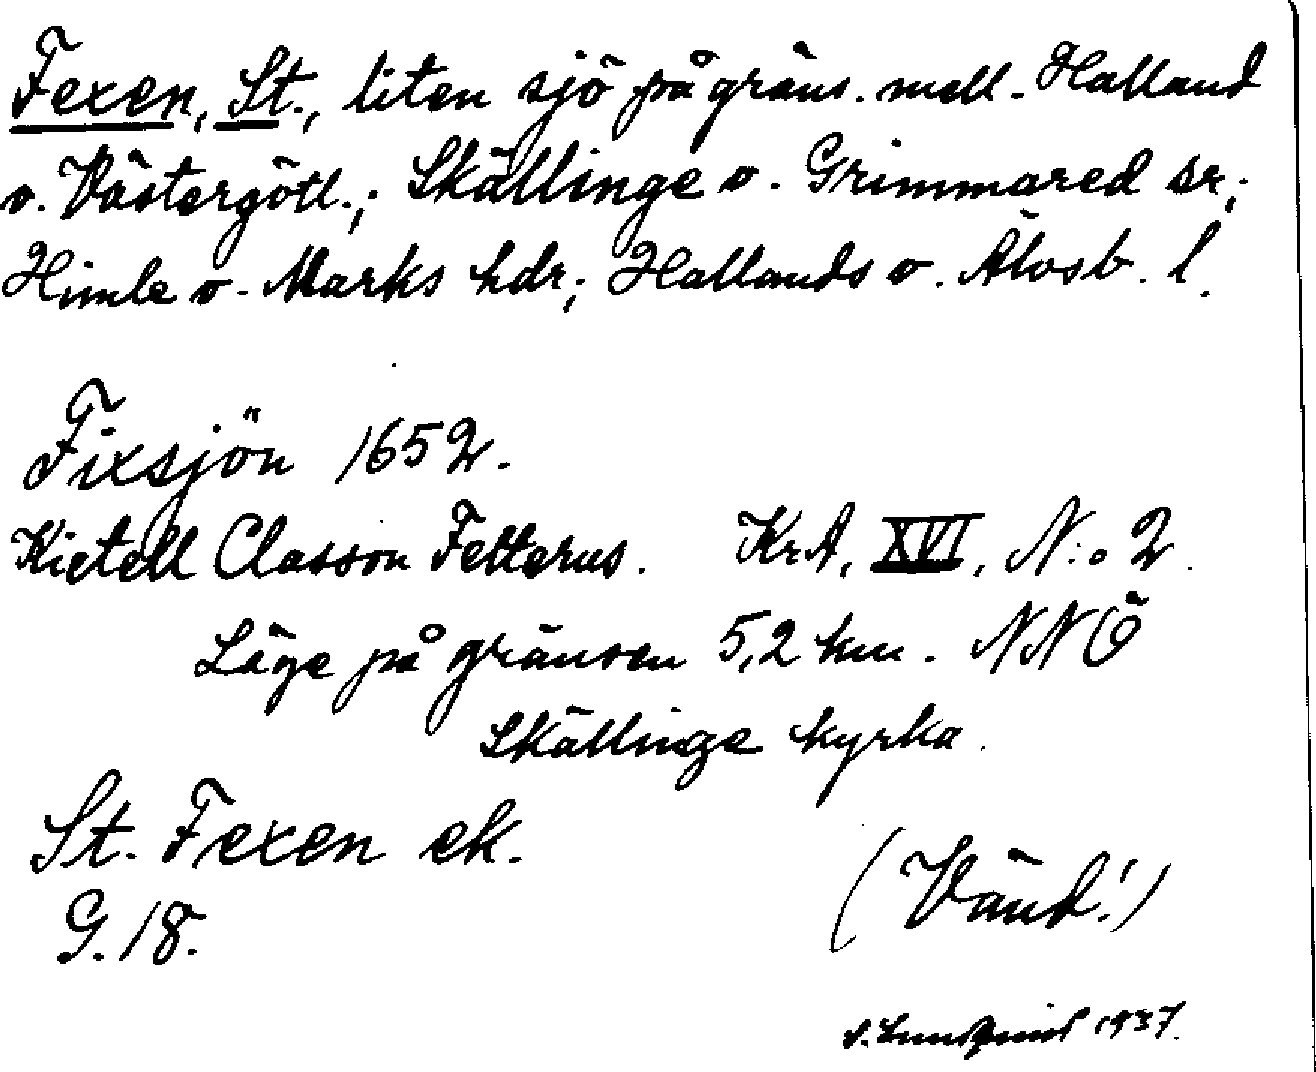 Fexen, St., liten sjö på gräns. mell. Halland
o. Västergötl.; Skällinge o. Grimmared sr;
Himle o. Marks hdr; Hallands o. Älvsb. l.
Fixsjön 1652.
Kietell Classon Felterus. KrA, XVI, N:o 2.
Läge på gränsen 5,2 km. NNÖ
Skällinge kyrka.
St. Fexen ek.
G. 18.
(Vänd!)
S. Lundquist 1937.